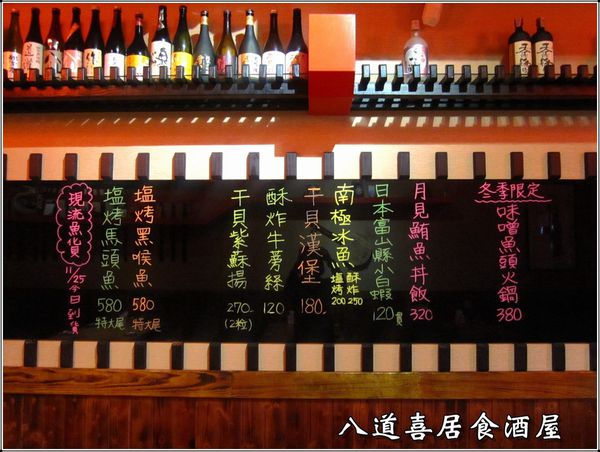 冬季限定
味噌魚頭火鍋 380
月見鮪魚丼飯 320
日本富山縣小白蝦 120
南極冰魚
酥炸 250
塩烤 200
干貝漢堡 180-
酥炸牛蒡絲 120
干貝紫蘇揚 270-
(2粒)
塩烤黑喉魚 580
特大尾
塩烤馬頭魚 580
特大尾
現流魚化貝
11/25今日到貨
八道喜居食酒屋